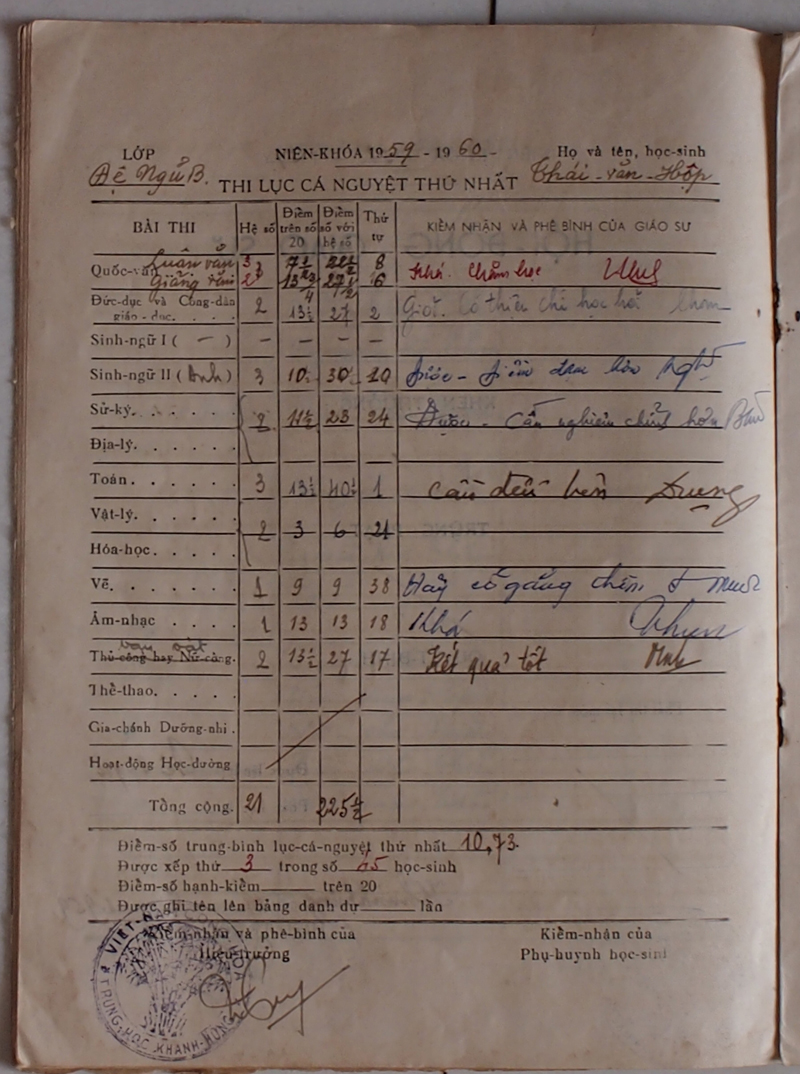 LỚP NIÊN-KHÓA 1959 - 1960 - Họ và tên, học-sinh
Đệ Ngũ B. THI LỤC CÁ NGUYỆT THỨ NHẤT Thái-văn-Hộp
BÀI THI Hệ số Điểm trên số 20 Điểm số với hệ số Thứ tự KIỂM NHẬN VÀ PHÊ BÌNH CỦA GIÁO SƯ
Quốc-văn Luận văn 3 7½ 22½ 8
Giảng văn 2 6 Khá. Chăm học
Đức-dục và Công-dân giáo-dục. 2 13½ 27 2 Giỏi. Có thiện chí học hỏi
Sinh-ngữ I ( — ) — — — —
Sinh-ngữ II ( Anh ) 3 10 30 20
Sử-ký. 2 11½ 23 24 Được - Cần nghiên chữ hơn
Địa-lý.
Toán. 3 13½ 40½ 1 Cần đều hơn Dụng
Vật-lý. 2 3 6 21
Hóa-học.
Vẽ. 1 9 9 38 Hãy cố gắng thêm
Âm-nhạc 1 13 13 18 Khá
Thủ-công hay Nữ-công. 2 13½ 27 17 Kết quả tốt
Thể-thao.
Gia-chánh Dưỡng-nhi.
Hoạt-động Học-đường
Tổng cộng. 21 225½
Điểm-số trung-bình lục-cá-nguyệt thứ nhất 10,73
Được xếp thứ 3 trong số học-sinh
Điểm-số hạnh-kiểm trên 20
Được ghi tên lên bảng danh dự lần
Kiểm-nhận và phê-bình của Kiểm-nhận của
Hiệu-trưởng Phụ-huynh học-sinh
TRUNG-HỌC KHÁNH-HƯNG